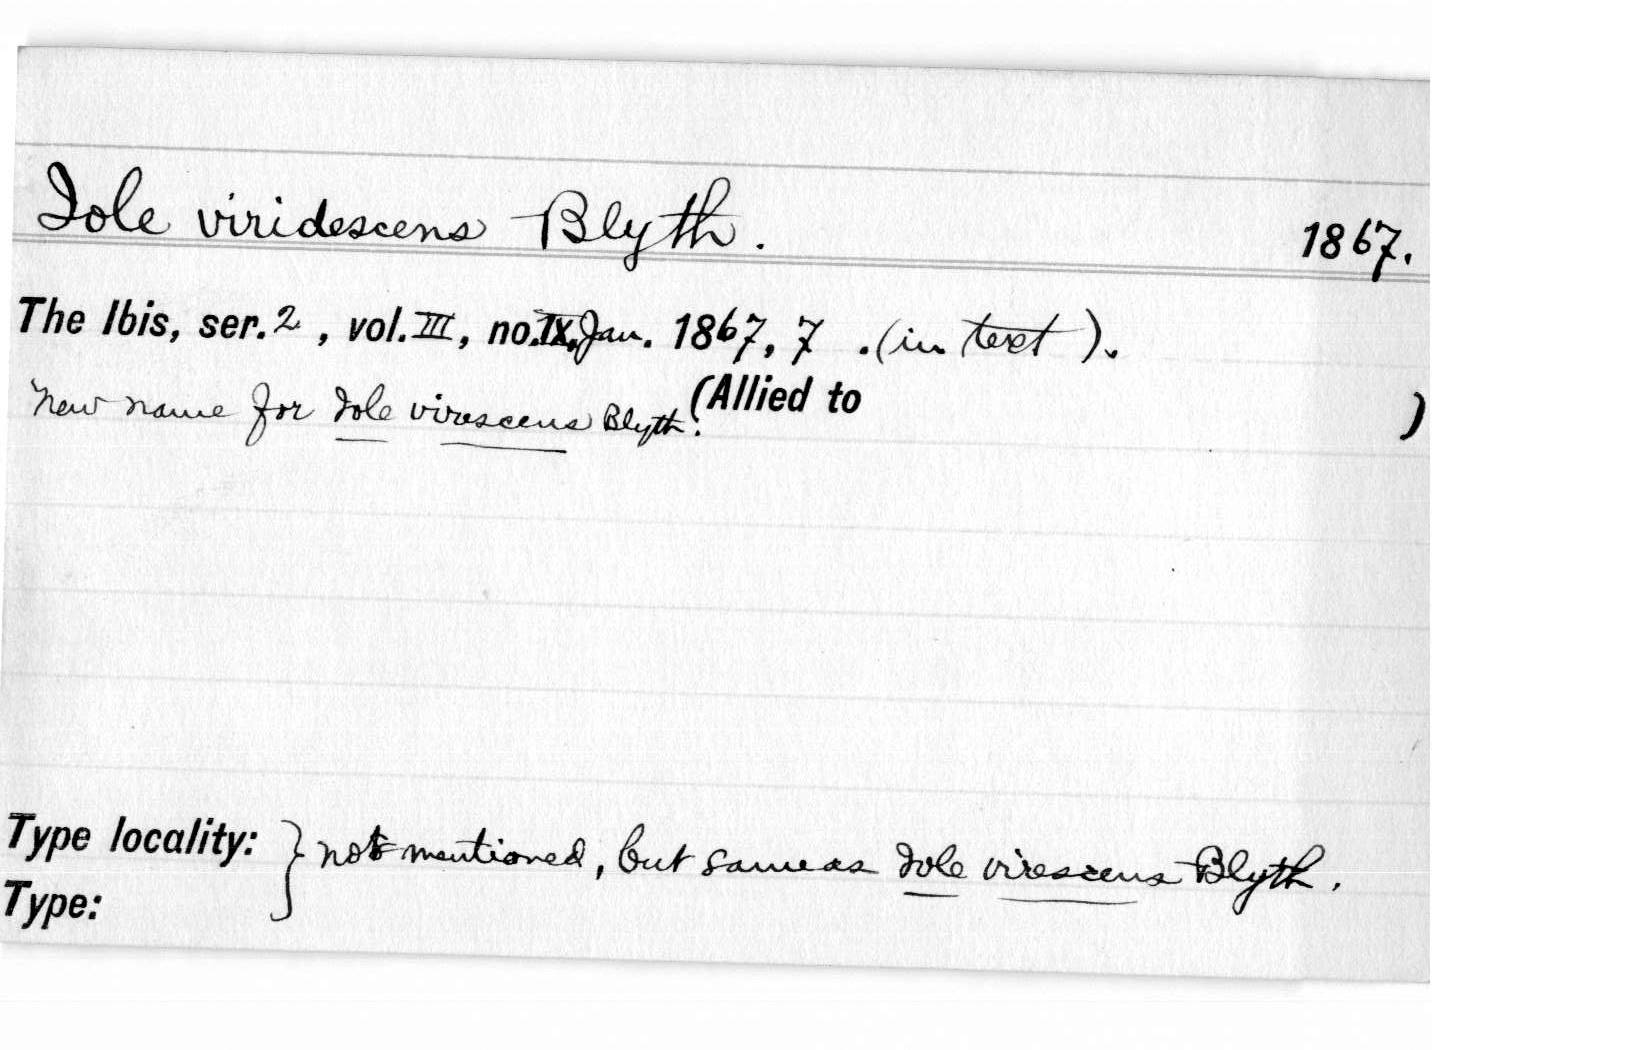 Iole viridescens Blyth. 1867.
The Ibis, ser. 2, vol. III, no. IX, Jan. 1867, 7. (in text).
New name for Iole virescens Blyth. (Allied to )
Type locality: } not mentioned, but same as Iole virescens Blyth.
Type: